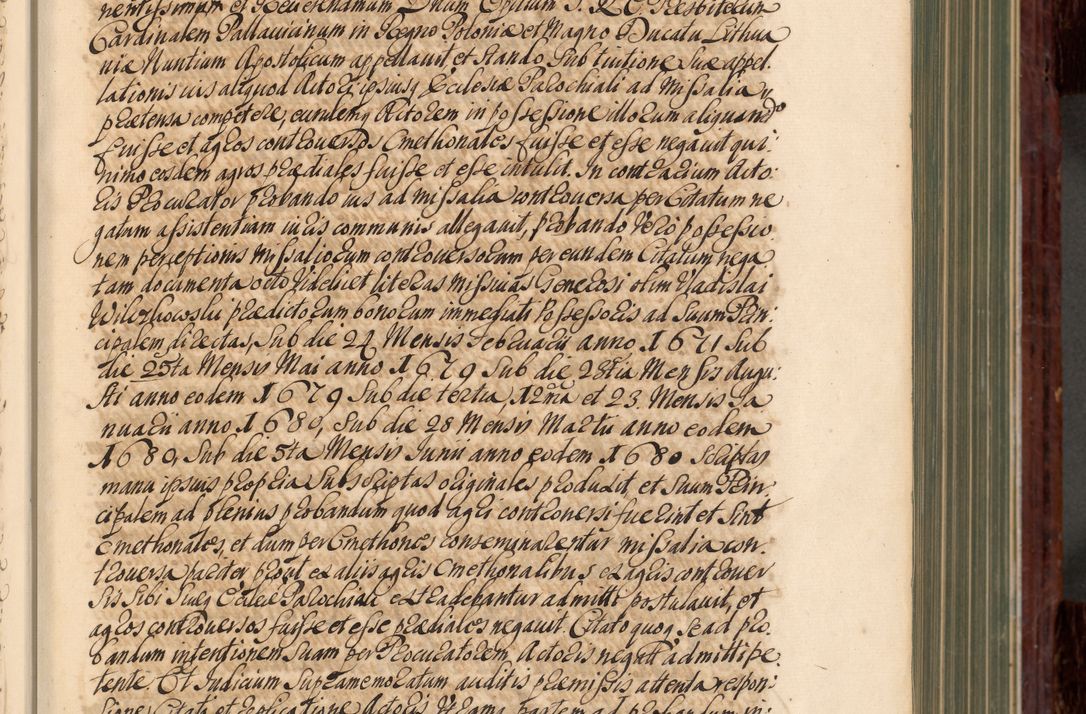 nentissimum et Reverendumum Dnum Opitium S. R. E. Presbiterum
Cardinalem Pallavicinum in Regno Poloniæ et Magno Ducatu Lithua
niæ Nuntium Apostolicum appellavit, et stando Sub tuitione suæ appel
lationis ius aliquod Actori, ipsiusq Ecclesiæ Parochiali ad Missalia
prætensa competere, eundemq Actorem in possessione illorum aliquando
fuisse et agros controversos Cmethonales fuisse et esse negavit qui:
nimo eosdem agros prædiales fuisse et esse intulit. In contrarium Acto:
ris Procurator probando ius ad missalia controversa per Citatum ne
gatum assistentiam iuris communis allegavit, probando Vero possessio
nem perceptionis missaliorum controversorum per eundem Citatum nega
tam documenta octo Videlicet literas missivas Generosi olim Vladislai
Wilczkowski prædictorum bonorum immediati Possessoris ad Suum Prin:
cipalem directas, Sub die 24 Mensis Februarii anno 1671 Sub
die 25ta Mensis Mai anno 1679 Sub die 28tia Mensis Augu:
sti anno eodem 1679 Sub die tertia, 12ma et 23. Mensis Ja
nuarii anno 1680, Sub die 28 Mensis Martii anno eodem
1680, Sub die 5ta Mensis Junii anno eodem 1680 Scriptas
manu ipsius propria Subscriptas originales produxit, et Suum Prin:
cipalem ad plenius probandum quod agri controversi fuerint et Sint
Cmethonales, et dum per Cmethones conseminarentur missalia con:
troversa pariter prout ex aliis agris Cmethonalibus ex agris controver
sis Sibi Suæq Ecclæ Parochiali extradebantur admitti postulavit, et
agros controversos fuisse et esse prædiales negavit. Citato quoq Se ad pro:
bandum intentionem Suam per Procuratorem Actoris negata admitti pe
tente. Et Judicium Supramemoratum auditis præmissis attenta respon:
sione Citati et replicatione Actoris partem ad probandum in: